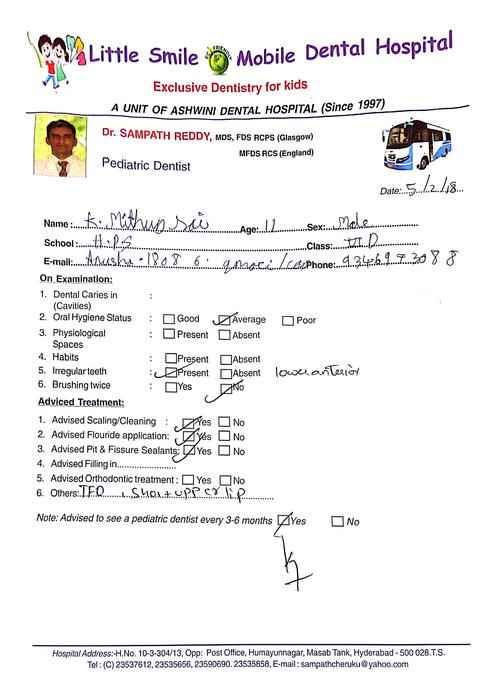 Little Smile Mobile Dental Hospital
Exclusive Dentistry for kids
A UNIT OF ASHWINI DENTAL HOSPITAL (Since 1997)
Dr. SAMPATH REDDY, MDS, FDS RCPS (Glasgow)
MFDS RCS (England)
Pediatric Dentist
Date: 5/2/18
Name: K. Mithun Sai Age: 11 Sex: Male
School: H.P.S Class: VI D
E-mail: Phone:
On Examination:
1. Dental Caries in :
(Cavities)
2. Oral Hygiene Status : Good Average Poor
3. Physiological : Present Absent
Spaces
4. Habits : Present Absent
5. Irregular teeth : Present Absent lower anterior
6. Brushing twice : Yes No
Adviced Treatment:
1. Advised Scaling/Cleaning : Yes No
2. Advised Flouride application: Yes No
3. Advised Pit & Fissure Sealants: Yes No
4. Advised Filling in....................
5. Advised Orthodontic treatment : Yes No
6. Others: short upper lip
Note: Advised to see a pediatric dentist every 3-6 months Yes No
Hospital Address:-H.No. 10-3-304/13, Opp: Post Office, Humayunnagar, Masab Tank, Hyderabad - 500 028.T.S.
Tel : (C) 23537612, 23535656, 23590690. 23535858, E-mail : sampathcheruku@yahoo.com